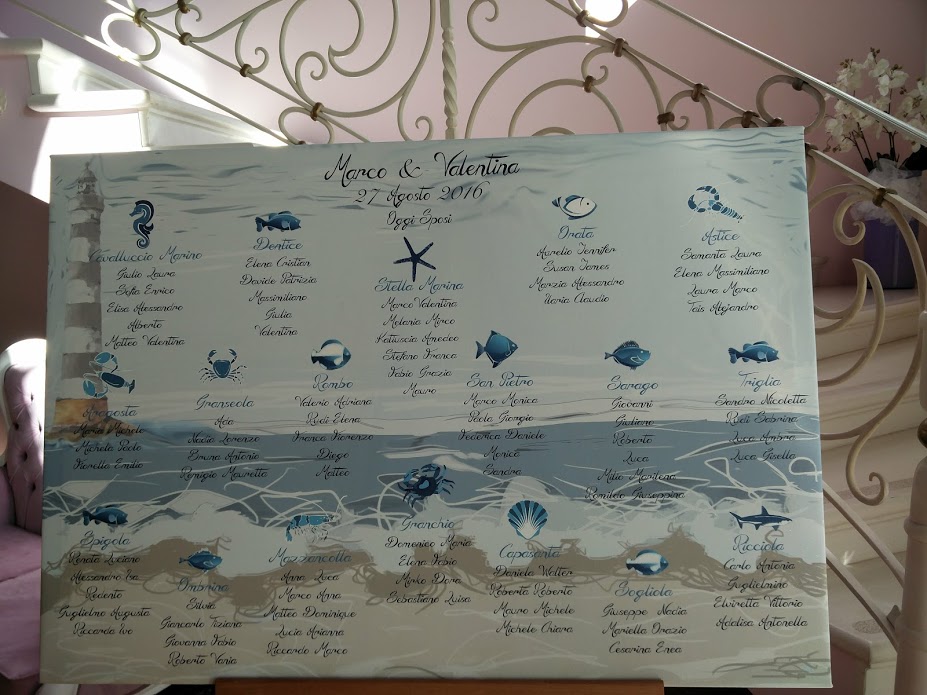 Marco & Valentina
27 Agosto 2016
Oggi Sposi
Cavalluccio Marino
Giulio Laura
Sofia Enrico
Elisa Alessandro
Alberto
Matteo Valentina
Dentice
Elena Cristian
Davide Patrizia
Massimiliano
Giulia
Valentina
Stella Marina
Marco Valentina
Melania Mirco
Katiuscia Amedeo
Stefano Franca
Fabio Grazia
Mauro
Orata
Aurelio Jennifer
Susan James
Marzia Alessandro
Ilaria Claudio
Astice
Samanta Laura
Elena Massimiliano
Laura Marco
Tais Alejandro
Aragosta
Maria Michele
Michela Paolo
Fiorella Emilio
Granseola
Ada
Nadia Lorenzo
Bruna Antonio
Remigio Mauretta
Rombo
Valerio Adriana
Rudi Elena
Franca Fiorenzo
Diego
Matteo
San Pietro
Marco Monica
Paola Giorgio
Federica Daniele
Monica
Sandra
Sarago
Giovanni
Giuliano
Roberto
Luca
Milio Marilena
Romilda Giuseppina
Triglia
Sandro Nicoletta
Rudi Sabrina
Luca Ambra
Luca Gisella
Spigola
Renata Luciano
Alessandro Isa
Redento
Guglielmo Augusta
Riccardo Ivo
Ombrina
Silvia
Giancarlo Tiziana
Giovanna Fabio
Roberto Vania
Mazzancolla
Anna Luca
Marco Anna
Matteo Dominique
Lucia Arianna
Riccardo Marco
Granchio
Domenico Maria
Elena Fabio
Mirko Dora
Sebastiano Luisa
Capasanta
Daniela Walter
Roberta Roberto
Mauro Michele
Michele Chiara
Sogliola
Giuseppe Nadia
Mariella Orazio
Cesarina Enea
Ricciola
Carlo Antonia
Guglielmino
Elviretta Vittorio
Adalisa Antonella